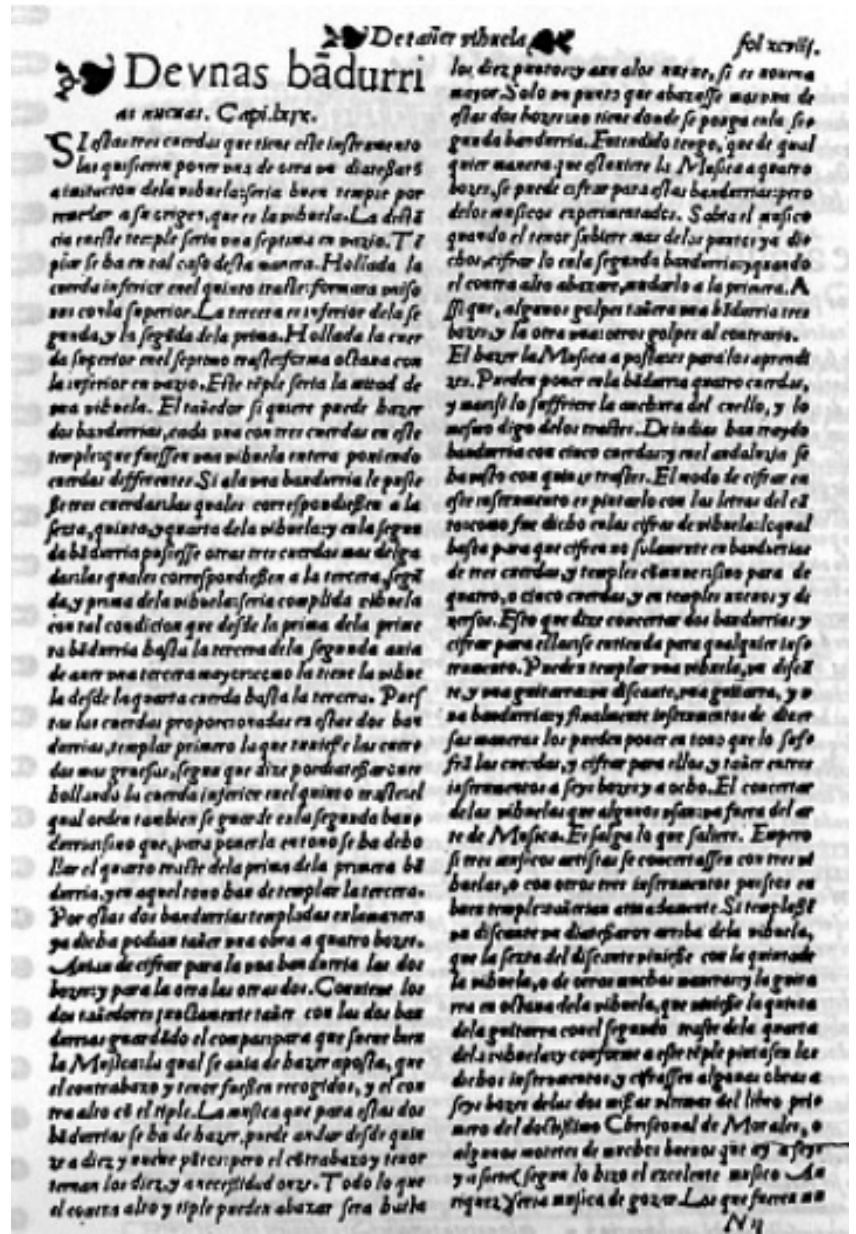 De tañer vihuela
fol xcviij.
De vnas bãdurri
as nueuas. Capi. lxix.
SI estas tres cuerdas que tiene este instrumento
las quisieren poner vna de otra vn diatessarõ
a imitacion dela vihuela: seria buen temple por
remedar a su origen, que es la vihuela. La distã
cia eneste temple seria vna septima en vazio. Tẽ
plar se ha en tal caso desta manera. Hollada la
cuerda inferior enel quinto traste: formara vniso
nus conla superior. La tercera es inferior dela se
gunda, y la segũda dela prima. Hollada la cuer
da superior enel septimo traste: forma octaua con
la inferior en vazio. Este tẽple seria la mitad de
vna vihuela. El tañedor si quiere puede hazer
dos bandurrias, cada vna con tres cuerdas en este
temple: que fuessen vna vihuela entera poniendo
cuerdas differentes. Si ala vna bandurria le pusies
se tres cuerdas: las quales correspondiessen a la
sexta, quinta, y quarta dela vihuela: y enla segun
da bãdurria pusiesse otras tres cuerdas mas delga
das: las quales correspondiessen a la tercera, segũ
da, y prima dela vihuela: seria complida vihuela
con tal condicion que desde la prima dela prime
ra bãdurria hasta la tercera dela segunda auia
de auer vna tercera mayor: como la tiene la vihue
la desde la quarta cuerda hasta la tercera. Pues
tas las cuerdas proporcionadas en estas dos ban
durrias, templar primero la que tuuiesse las cuer
das mas gruessas, segun que dize por diatessaron
hollando la cuerda inferior enel quinto traste: el
qual orden tambien se guarde enla segunda ban
durria: sino que, para ponerla en tono se ha de ho
llar el quarto traste dela prima dela primera bã
durria, y en aquel tono han de templar la tercera.
Por estas dos bandurrias templadas enla manera
ya dicha podian tañer vna obra a quatro bozes.
Auian de cifrar para la vna bandurria las dos
bozes: y para la otra las otras dos. Conuiene los
dos tañedores juntamente tañer con las dos ban
durrias guardãdo el compas: para que suene bien
la Musica: la qual se auia de hazer aposta, que
el contrabaxo y tenor fuessen recogidos, y el con
tra alto cõ el tiple. La musica que para estas dos
bãdurrias se ha de hazer, puede andar desde quin
ze a diez y nueue pũtos: pero el cõtrabaxo y tenor
ternan los diez, y a necessidad onze. Todo lo que
el contra alto y tiple pueden abaxar sera hasta
los diez puntos: y aun alos nueue, si es nouena
mayor. Solo vn punto que abaxasse mas vna de
estas dos bozes: no tiene donde se ponga enla se
gunda bandurria. Entendido tengo, que de qual
quier manera que estuuiere la Musica a quatro
bozes, se puede cifrar para estas bandurrias: pero
delos musicos experimentados. Sabra el musico
quando el tenor subiere mas delos puntos ya di
chos, cifrar lo enla segunda bandurria: y quando
el contra alto abaxare, mudarlo a la primera. A
ssi que, algunos golpes tañera vna bãdurria tres
bozes, y la otra vna: otros golpes al contrario.
El hazer la Musica a posta: es para los aprendi
zes. Pueden poner enla bãdurria quatro cuerdas,
y mas si lo suffriere la anchura del cuello, y lo
mesmo digo delos trastes. De indias han traydo
bandurria con cinco cuerdas: y enel andaluzia se
ha visto con quinze trastes. El modo de cifrar en
este instrumento es pintarlo con las letras del cã
to: como fue dicho enlas cifras de vihuela: lo qual
basta para que cifren no solamente en bandurrias
de tres cuerdas, y temples cõmunes: sino para de
quatro, o cinco cuerdas, y en temples nueuos y di
uersos. Esto que dize concertar dos bandurrias y
cifrar para ellas: se entienda para qualquier ins
trumento. Pueden templar vna vihuela, vn discã
te, y vna guitarra: vn discante, vna guitarra, y v
na bandurria: y finalmente instrumentos de diuer
sas maneras los pueden poner en tono que lo suf
frã las cuerdas, y cifrar para ellos, y tañer entres
instrumentos a seys bozes y a ocho. El concertar
delas vihuelas que algunos vsan: va fuera del ar
te de Musica. Es salga lo que saliere. Empero
si tres musicos artistas se concertassen con tres vi
huelas, o con otros tres instrumentos puestos en
buen temple: tañerian atinadamente. Si templassẽ
vn discante vn diatessaron arriba dela vihuela,
que la sexta del discante viniesse con la quinta de
la vihuela, o de otras muchas maneras: y la guita
rra en octaua dela vihuela, que viniesse la quinta
dela guitarra conel segundo traste dela quarta
dela vihuela: y conforme a este tẽple pintasen los
dichos instrumentos, y cifrassen algunas obras a
seys bozes delas dos missas vltimas del libro pri
mero del doctissimo Christoual de Morales, o
algunos motetes de muchos buenos que ay a seys
y a siete (segun lo hizo el excelente musico An
riquez) seria musica de gozar. Los que fueren mu
N ij